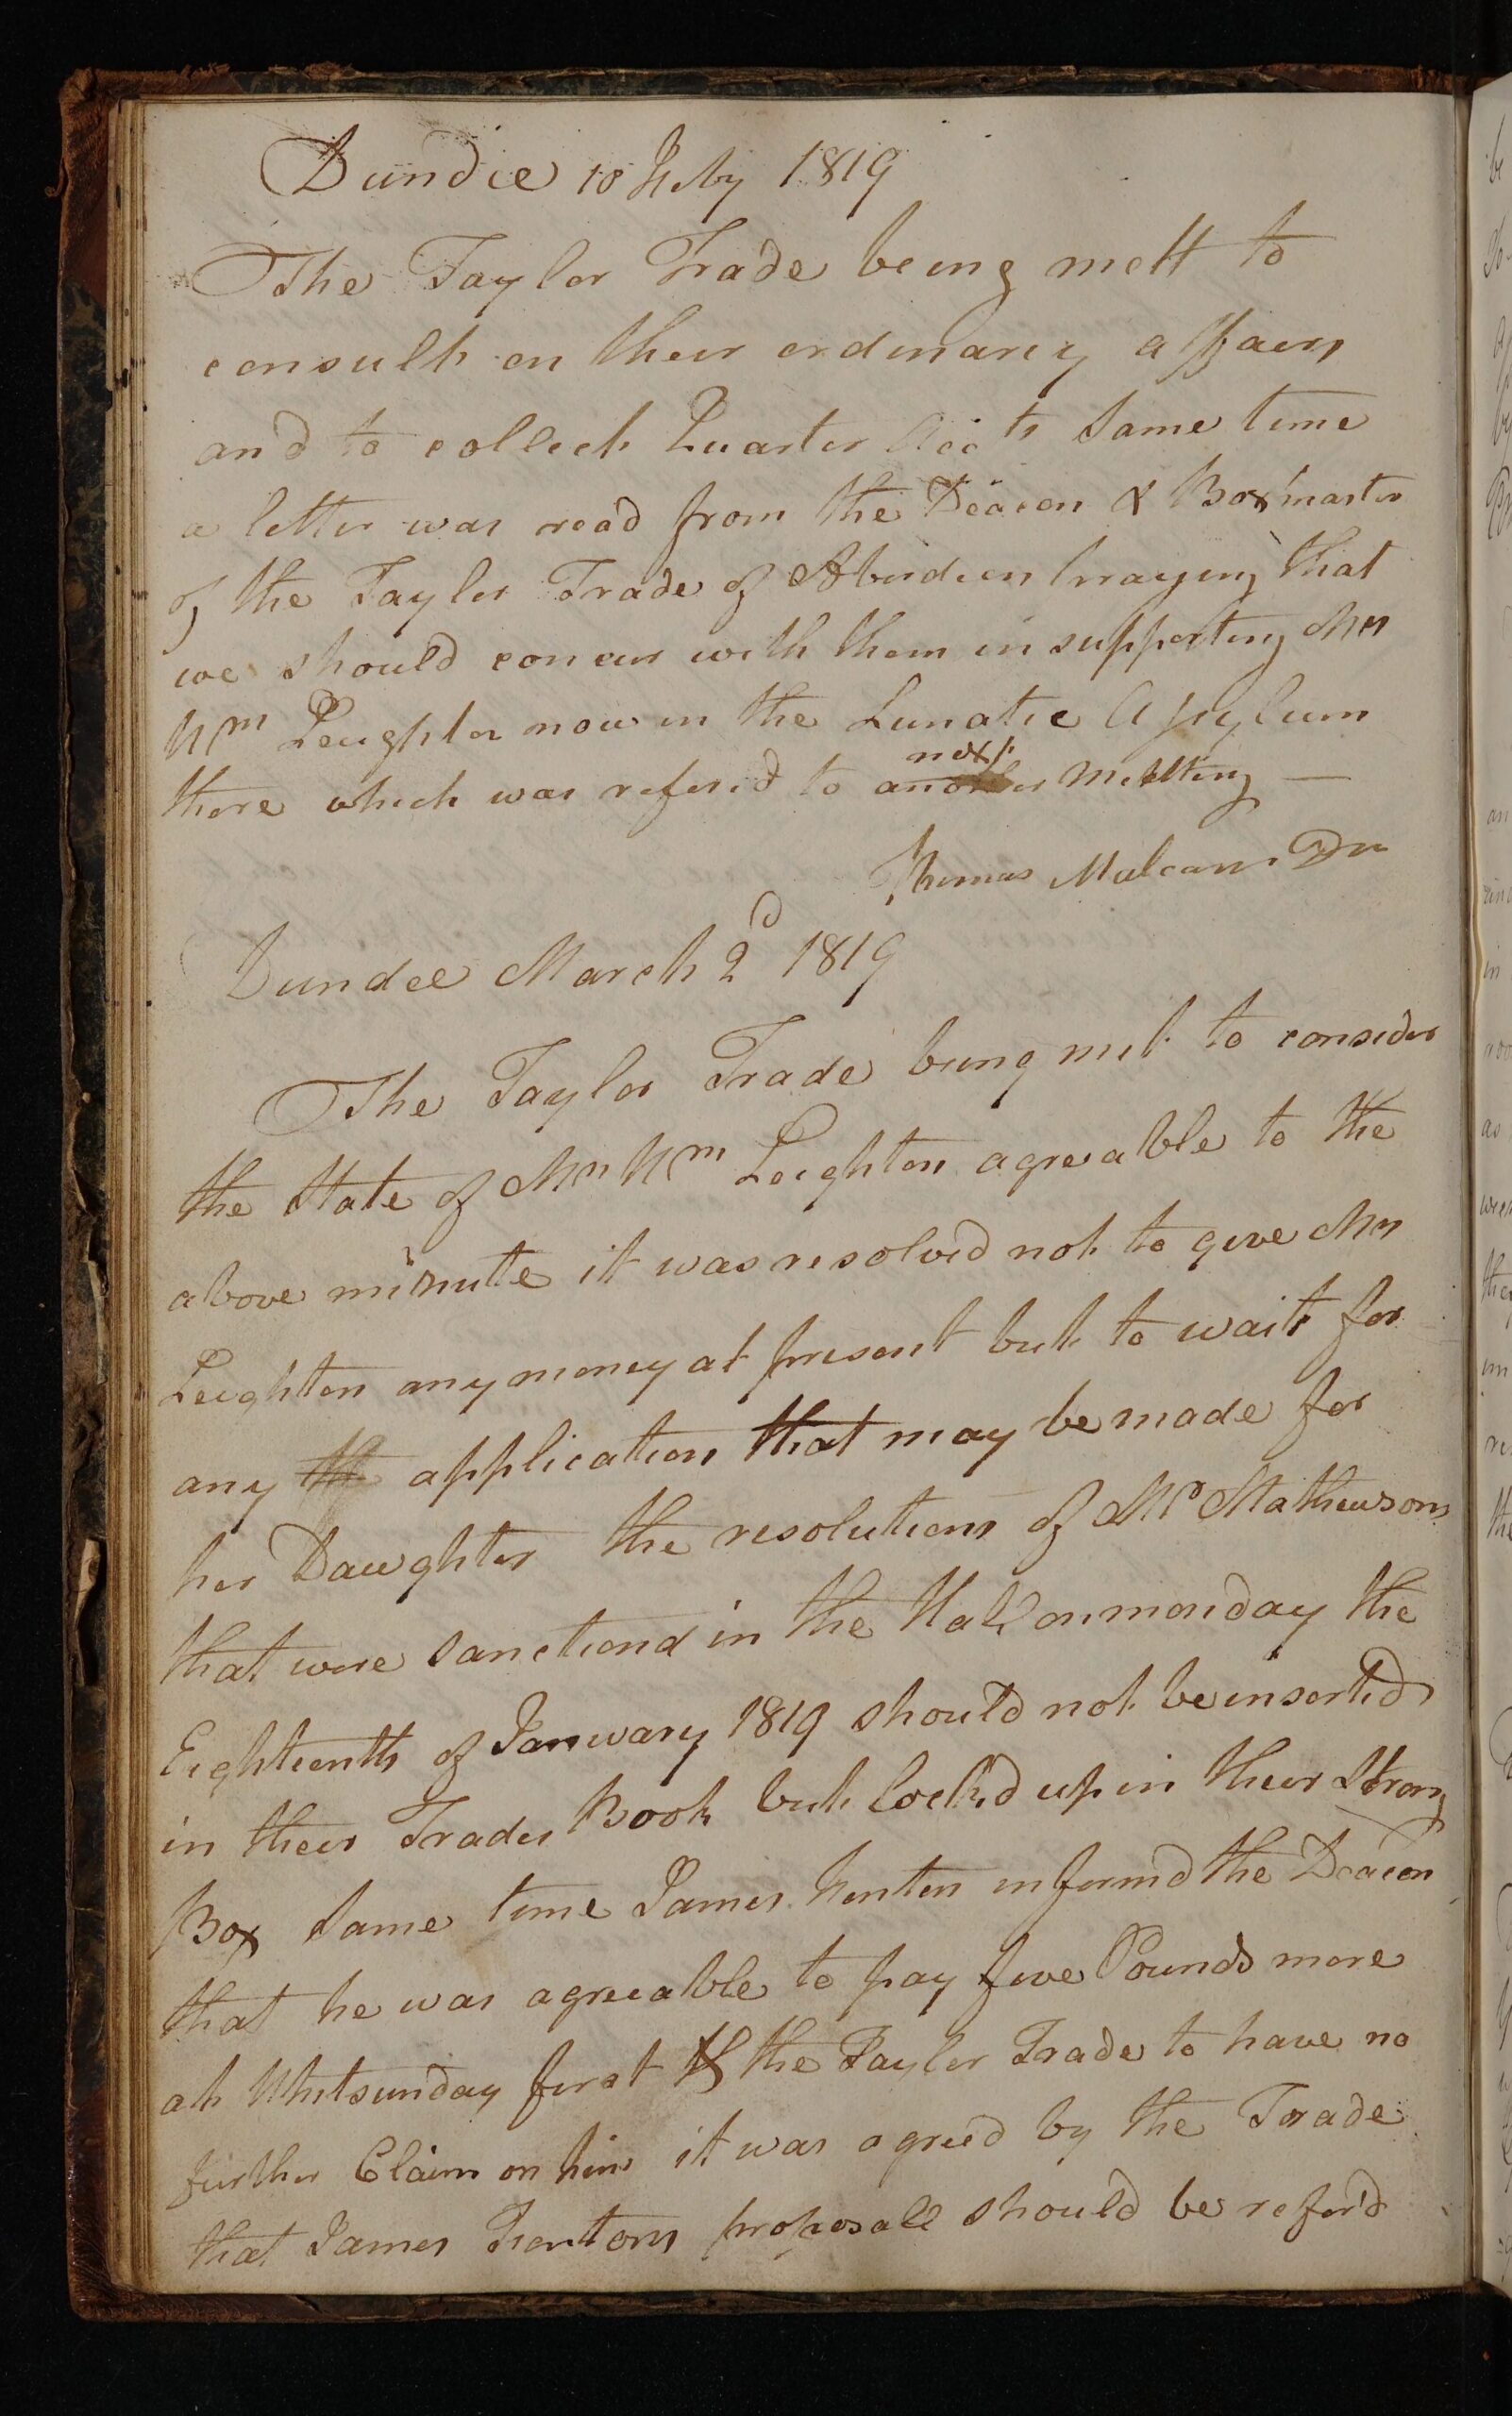 Dundee 10 Feby 1819
The Taylor Trade being mett to
consult on their ordinary affairs
and to collect Quarter Accts Same time
a letter was read from the Deacon & Boxmaster
of the Taylor Trade of Aberdeen praying that
we should concur with them in supporting Mrs
Wm Leighton now in the Lunatic Asylum
there which was refered to another next Meetting —
Thomas Malcam Dn
Dundee March 2d 1819
The Taylor Trade being met to consider
the State of Mrs Wm Leighton agreable to the
above minute it was resolved not to give Mrs
Leighton any money at present but to wait for
any th application that may be made for
her Dawghter the resolutions of Mr Mathewsons
that were sanctiond in the Hall on monday the
Eighteenth of Janwary 1819 should not be inserted
in their Trades Book but lock'd up in their Strong
Box Same time James Fenton informd the Deacon
that he was agreeable to pay five Pounds more
at Whitsunday first If the Taylor Trade to have no
further Claim on him it was agreed by the Trade
that James Fentons proposall should be refer'd